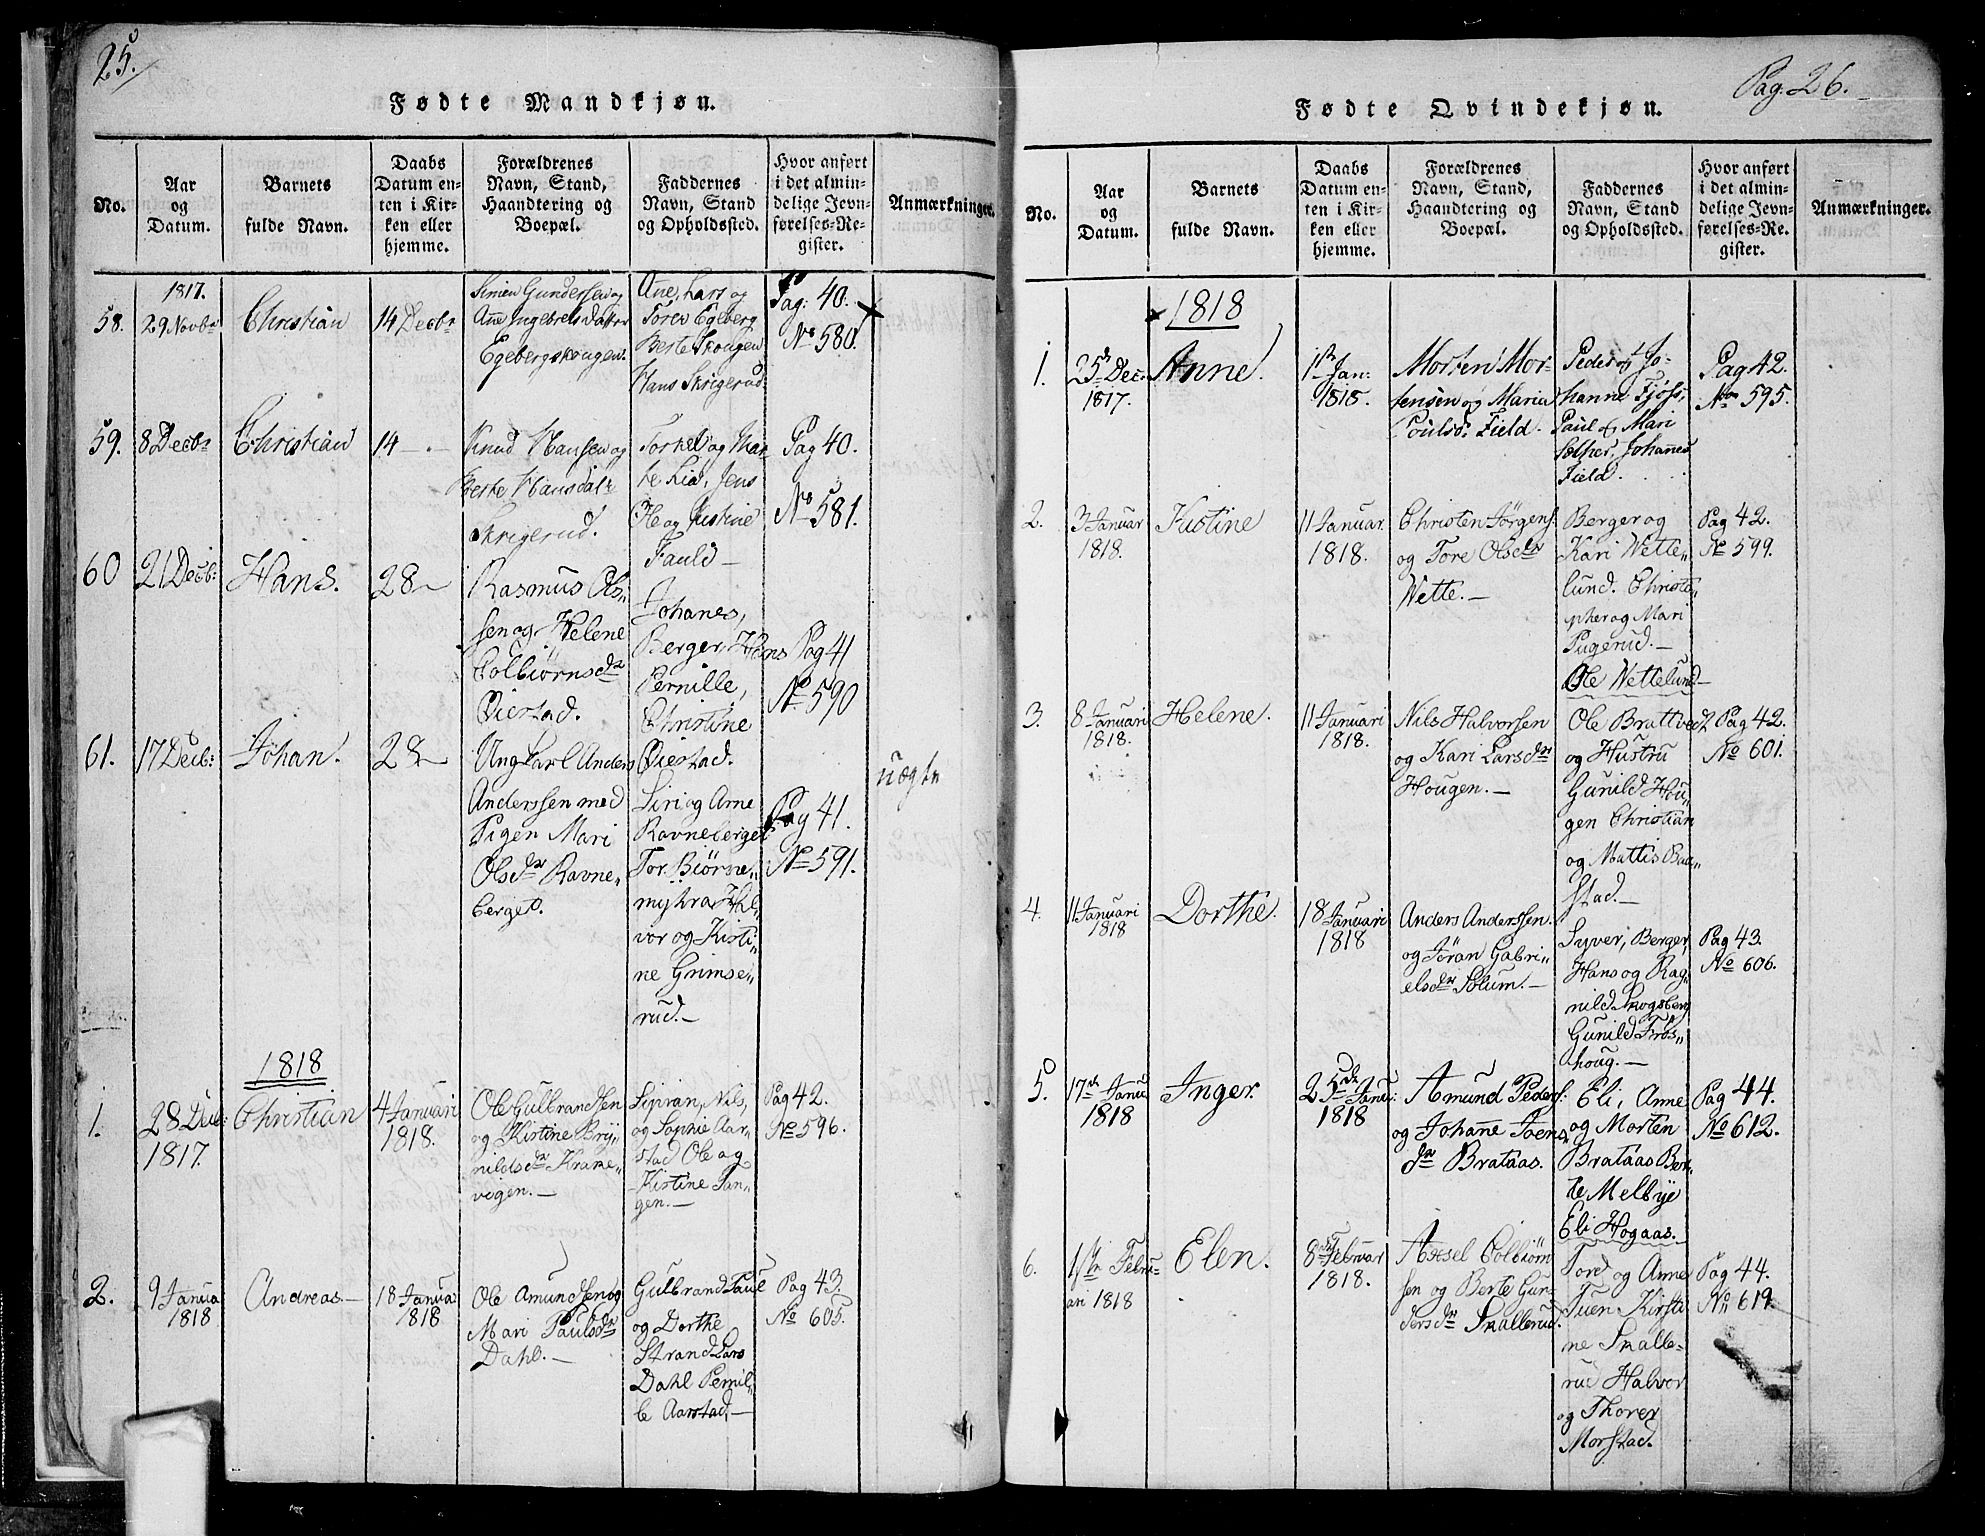 25.
Fødte Mandkjøn.
No.
Aar
og
Datum.
Barnets
fulde Navn.
Daabs
Datum en-
ten i Kir-
ken eller
hjemme.
Forældrenes
Navn, Stand,
Haandtering og
Boepæl.
Faddernes
Navn, Stand
og Opholdssted.
Hvor anført
i det almin-
delige Jevn-
førelses-Re-
gister.
Anmærkninger.
1817.
58.
29 Novbr
Christian
14 Decbr
Simen Gundersen og
Anne Ingebretsdatter
Egebergskougen.
Ane, Lars og
Tores Egeberg
Berte Skougen
Hans Skrigerud
Pag: 40.
No 580.
59.
8 Decbr
Christian
14 — . —
Knud Hansen og
Berte Hansdatr
Skrigerud.
Torkel og Mar-
te Lid, Jens
Ole og Justine
Fauld —
Pag 40.
No 581.
60
21 Decb:
Hans.
28 —
Rasmus Ols„
sen og Helene
Colbiørnsdr
Øiestad.
Johanes,
Berger, Hans
Pernille,
Christine
Øiestad.
Pag 41
No 590
61.
17 Decb:
Johan.
28 —
Ungkarl Anders
Anderssen med
Pigen Mari
Olsdr Ravne„
berget.
Siri og Arne
Ravneberget
Tor Biørne„
myhra Hal„
vor og Kisti„
ne Grimse„
rud. —
Pag 41.
No 591.
uægte
1818
1.
28 Dec:
1817.
Christian
4 Januari
1818.
Ole Gulbrandsen
og Kistine Bry„
nildsdr Krame„
vigen. —
Siprian, Nils,
og Sophie Aar„
stad Ole og
Kistine Tan„
gen. —
Pag 42.
No 596.
2.
9 Janua
1818
Andreas —
18 Janua
1818
Ole Amundsen og
Mari Paulsdr
Dahl. —
Gulbrand Paul
og Dorthe
Strand Lars
Dahl Pernil„
le Aarstad. —
Pag 43.
No 605.
Pag. 26.
Fødte Qvindekjøn.
No.
Aar
og
Datum.
Barnets
fulde Navn.
Daabs
Datum en-
ten i Kir-
ken eller
hjemme.
Forældrenes
Navn, Stand,
Haandtering og
Boepæl.
Faddernes
Navn, Stand
og Opholdssted.
Hvor anført
i det almin-
delige Jevn-
førelses-Re-
gister.
Anmærkninger.
1818
1.
25 Dec.
1817.
Anne.
1st Jan:
1818.
Morten Mor-
tensen og Maria
Poulsd: Field.
Peder og Jo-
hanne Fjøss,
Paul og Mari
Sæther, Johannes
Field.
Pag 42.
No 595.
2.
3 Januar
1818.
Kistine
11 Januar.
1818.
Christen Jørgens.
og Tore Olsdr
Wette. —
Berger og
Kari Wette„
lund. Christo„
pher og Mari
Pugerud. —
Ole Wettelund —
Pag 42.
No 599.
3.
8 Januari
1818.
Helene.
11 Januari
1818.
Nils Halvorsen
og Kari Larsdr
Hougen. —
Ole Brattvedt
og Hustru
Gunild Hou„
gen Christian
og Mattis Bak„
stad. —
Pag 42.
No 601.
4.
11 Januari
1818
Dorthe.
18 Januari
1818
Anders Anderssen.
og Jøran Gabri„
elsdr Solum. —
Syver, Berger,
Hans og Rag„
nild Skogsberg
Gunild Frøs„
houg. —
Pag 43.
No 606.
5.
17de Janu
1818
Inger.
25de Janu:
1818
Amund Peders:
og Johanne Joens
dr Brataas.
Eli, Anne
og Morten
Brataas Ber„
te Melbye
Eli Hogaas.
Pag 44.
No 612.
6.
1ste Febru-
ari 1818
Elen.
8de Februar
1818.
Axsel Colbiørn
sen og Berte Gun„
dersdr Snallerud.
Tord og Anne
Tuen Kirsti
ne Snalle„
rud Halver
og Thorer
Morstad.
Pag 44.
No 619.